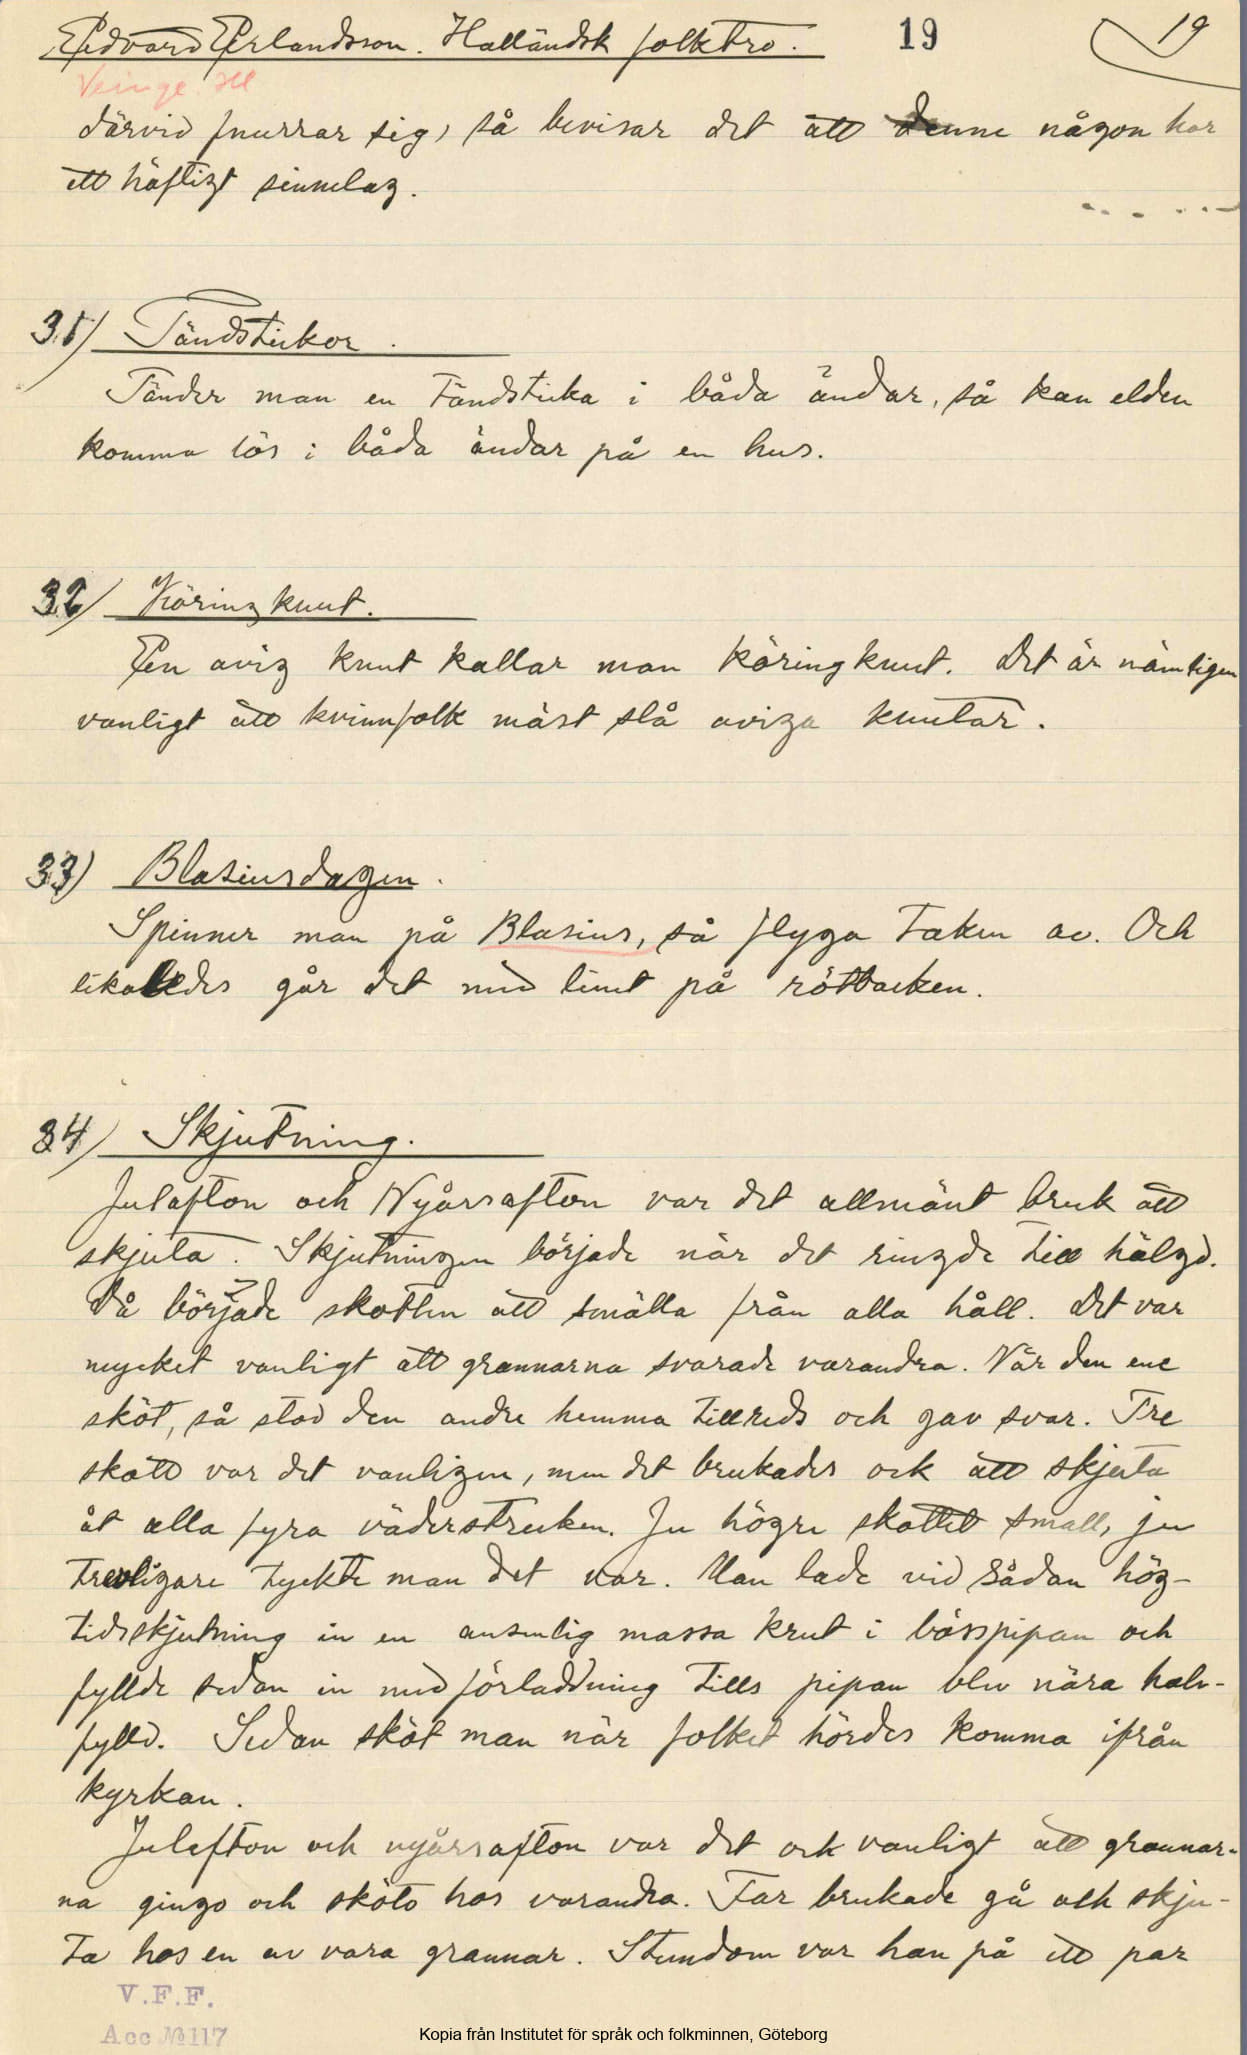 Edvard Erlandsson. Halländsk folktro. 19 19
Veinge. Hll
därvid snurrar sig, så bevisar det ätt denne någon har
ett häftigt sinnelag.
31) Tändstickor.
Tänder man en tändsticka i båda ändar, så kan elden
komma lös i båda ändar på en hus.
32) Käringknut.
En avig knut kallar man käringknut. Det är nämligen
vanligt ätt kvinnfolk mäst slå aviga knutar.
33) Blasiusdagen.
Spinner man på Blasius, så flyga taken av. Och
likaledes går det med linet på rötbacken.
34) Skjutning.
Julafton och Nyårsafton var det allmänt bruk ätt
skjuta. Skjutningen började när det ringde till hälgd.
Då började skotten ätt smälla från alla håll. Det var
mycket vanligt ätt grannarna svarade varandra. När den ene
sköt, så stod den andre hemma tillreds och gav svar. Tre
skått var det vanligen, men det brukades ock ätt skjuta
åt alla fyra väderstrecken. Ju högre skottet small, ju
trevligare tyckte man det var. Man lade vid sådan hög-
tidsskjutning in en ansenlig massa krut i bösspipan och
fyllde sedan in med förladdning tills pipan blev nära halv-
fylld. Sedan sköt man när folket hördes komma ifrån
kyrkan.
Julafton och nyårsafton var det ock vanligt ätt grannar-
na gingo och sköto hos varandra. Far brukade gå och skju-
ta hos en av vara grannar. Stundom var han på ett par
V.F.F.
Acc №117
Kopia från Institutet för språk och folkminnen, Göteborg